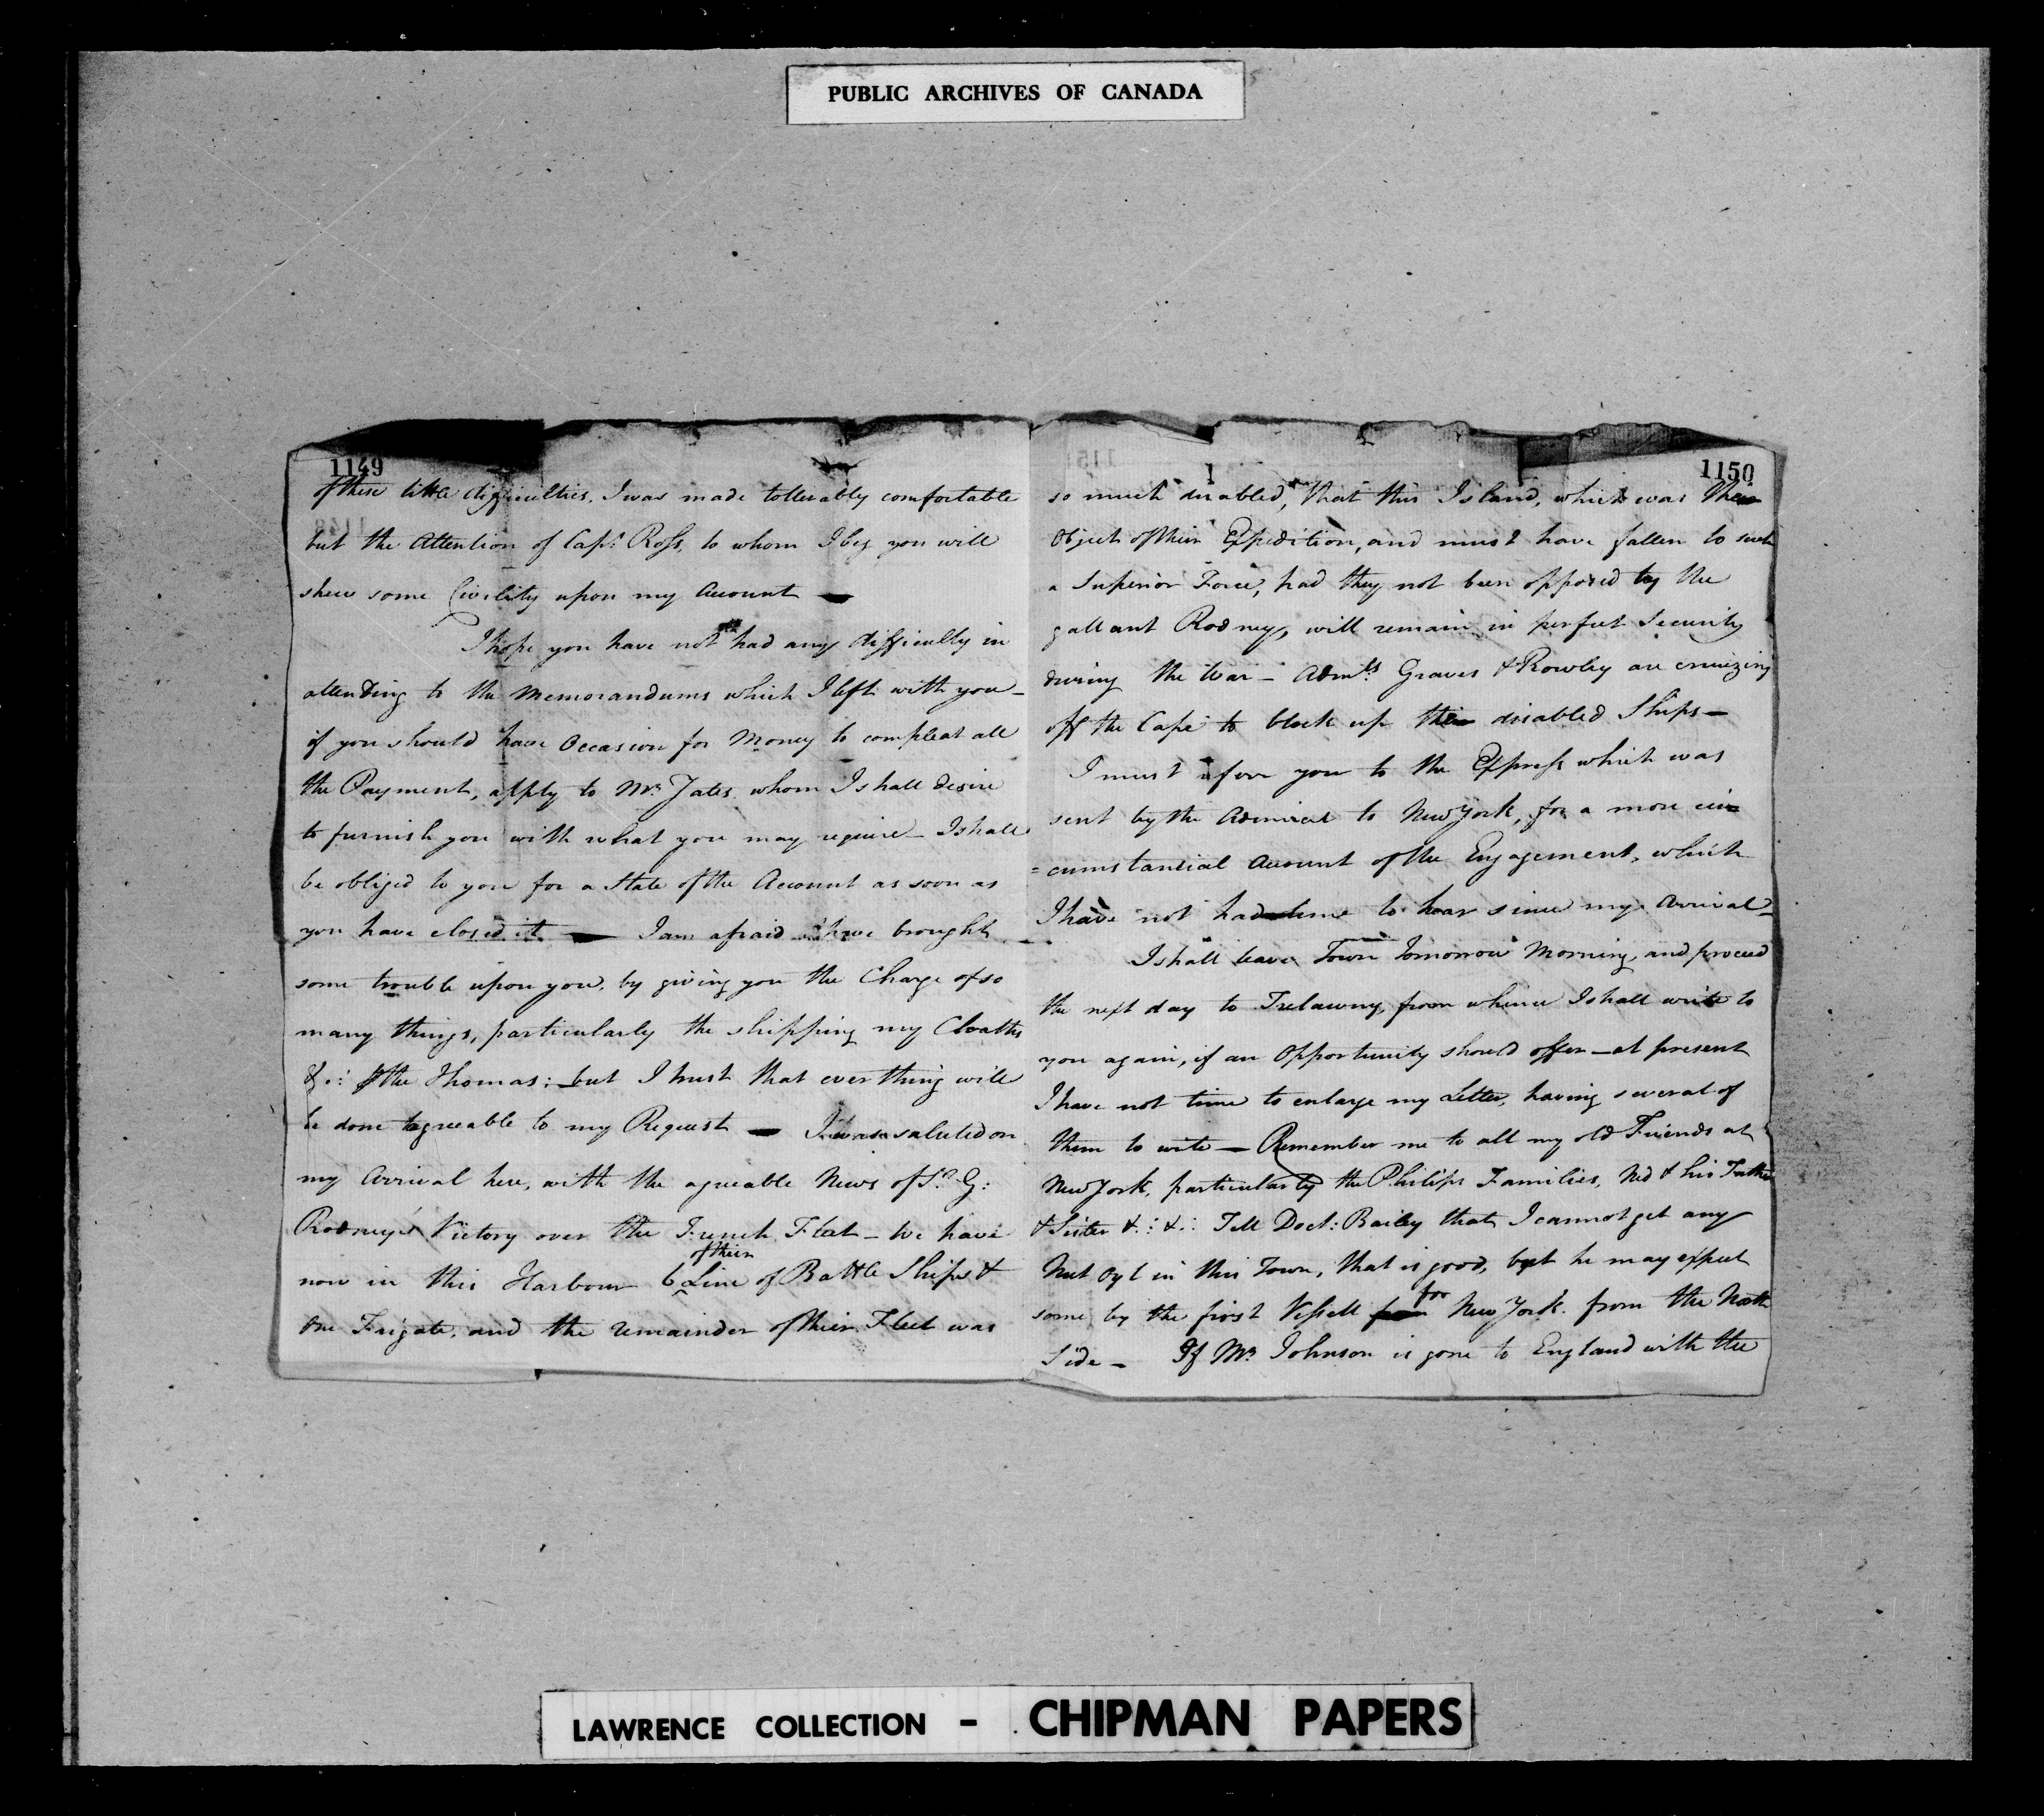 PUBLIC ARCHIVES OF CANADA
1149
of these little difficulties, I was made tollerably comfortable
but the Attention of Capt. Ross, to whom I beg you will
shew some Civility upon my Account —
I hope you have not had any difficulty in
attending to the Memorandums which I left with you —
if you should have Occasion for Money to compleat all
the Payment, apply to Mr. Yates whom I shall desire
to furnish you with what you may require — I shall
be obliged to you for a State of the Account as soon as
you have closed it — I am afraid I have brought
some trouble upon you, by giving you the Charge of so
many things, particularly the shipping my Cloaths
&c: the Thomas; — but I trust that everthing will
be done agreeable to my Request — I was saluted on
my Arrival here, with the agreable News of Sr. G:
Rodney's Victory over the French Fleet — We have
now in this Harbour 6 of their Line of Battle Ships &
One Frigate, and the remainder of their Fleet was
1150
so much disabled, that this Island, which was their
Object of their Expedition, and must have fallen to such
a Superior Force, had they not been opposed by the
gallant Rodney, will remain in perfect Security
during the War — Admls Graves & Rowley are cruizing
off the Cape to block up their disabled Ships —
I must refer you to the Express which was
sent by the Admiral to New York, for a more cir
=cumstantial Account of the Engagement, which
I have not had time to hear since my Arrival —
I shall leave Town Tomorrow Morning, and proceed
the next day to Trelawny, from whence I shall write to
you again, if an Opportunity should offer — at present
I have not time to enlarge my Letter, having several of
them to write — Remember me to all my old Friends at
New York, particularly the Philips Families, Ned & his Father
& Sister &c: &c: Tell Doct: Bailey that I cannot get any
Nut Oyl in this Town, that is good, but he may expect
some by the first Vessell for New York from the North
Side — If Mr. Johnson is gone to England with the
LAWRENCE COLLECTION - CHIPMAN PAPERS